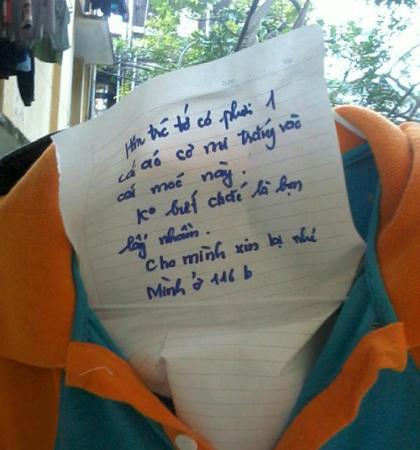 Hôm trc tớ có phơi 1
cái áo sơ mi trắng vào
cái móc này.
Ko biết chắc là bạn
lấy nhầm.
Cho mình xin lại nhé
Mình ở 116 b